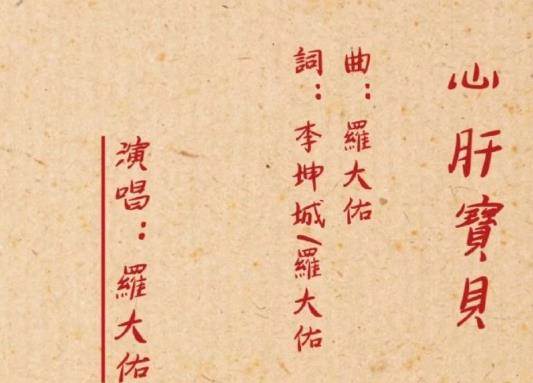 心肝寶貝
曲：羅大佑
詞：李坤城/羅大佑
演唱：羅大佑